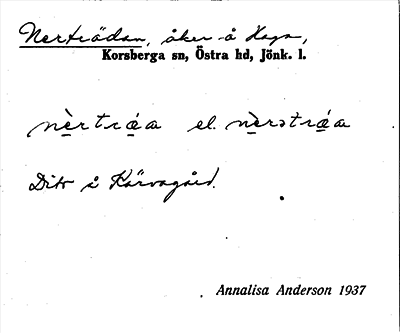 Nerträdan, åker å Haga,
Korsberga sn, Östra hd, Jönk. l.
nèrtráa el. nèrstráa
Dito å Kärvagård.
Annalisa Anderson 1937